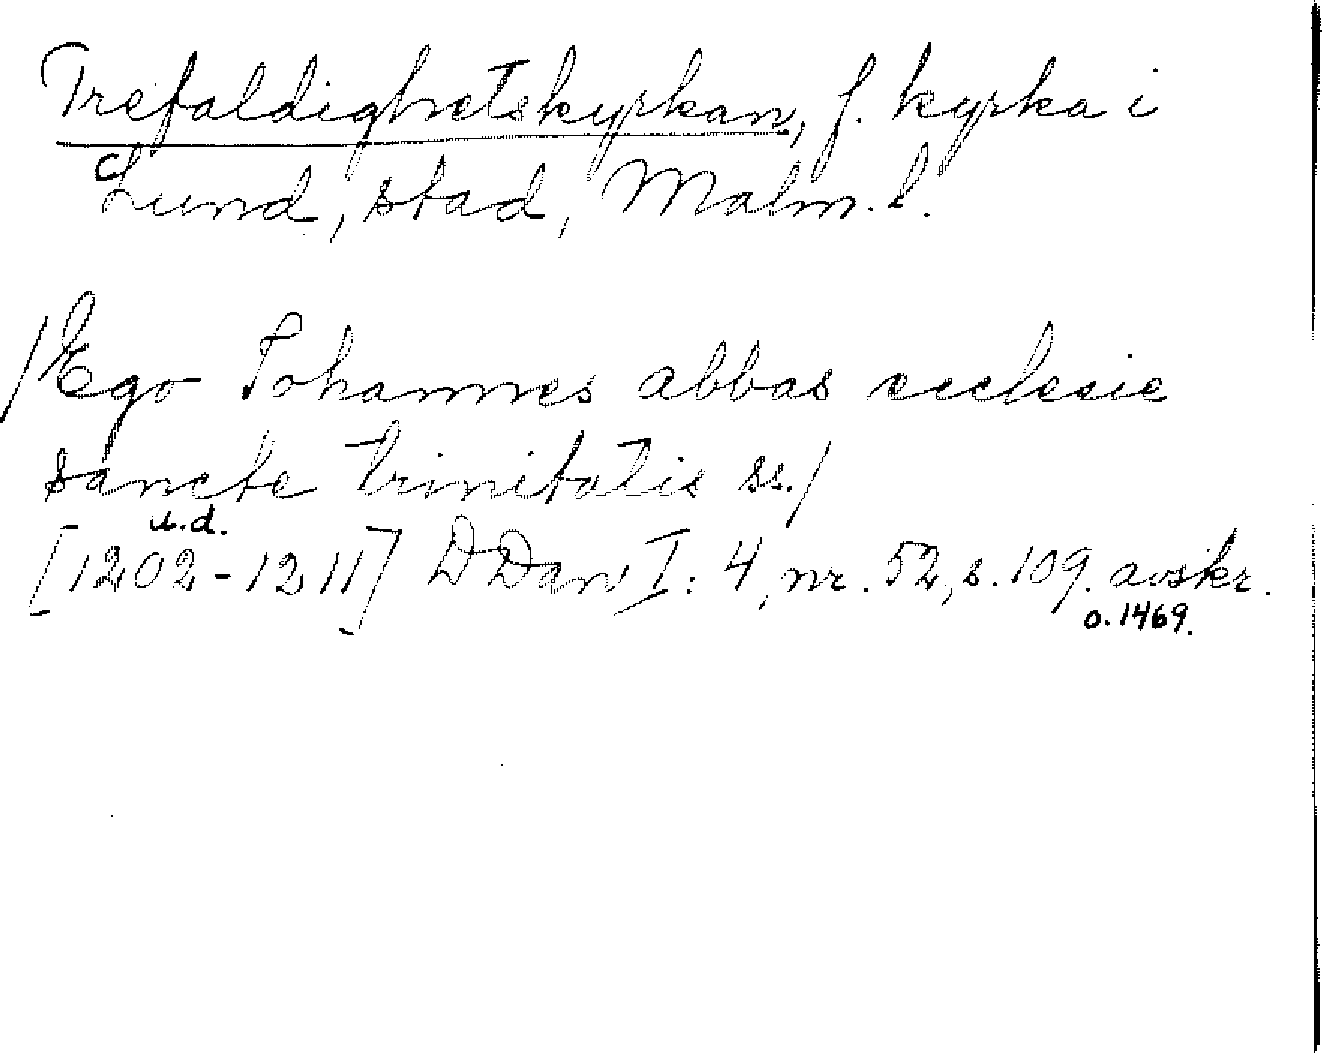 Trefaldighetskyrkan, f. kyrka i
Lund, stad, Malm. l.
/Ego Johannes abbas ecclesie
sancte trinitatis ss./
u.d.
[1202-1211] DDan I: 4, nr. 52, s. 109. avskr.
o. 1469.